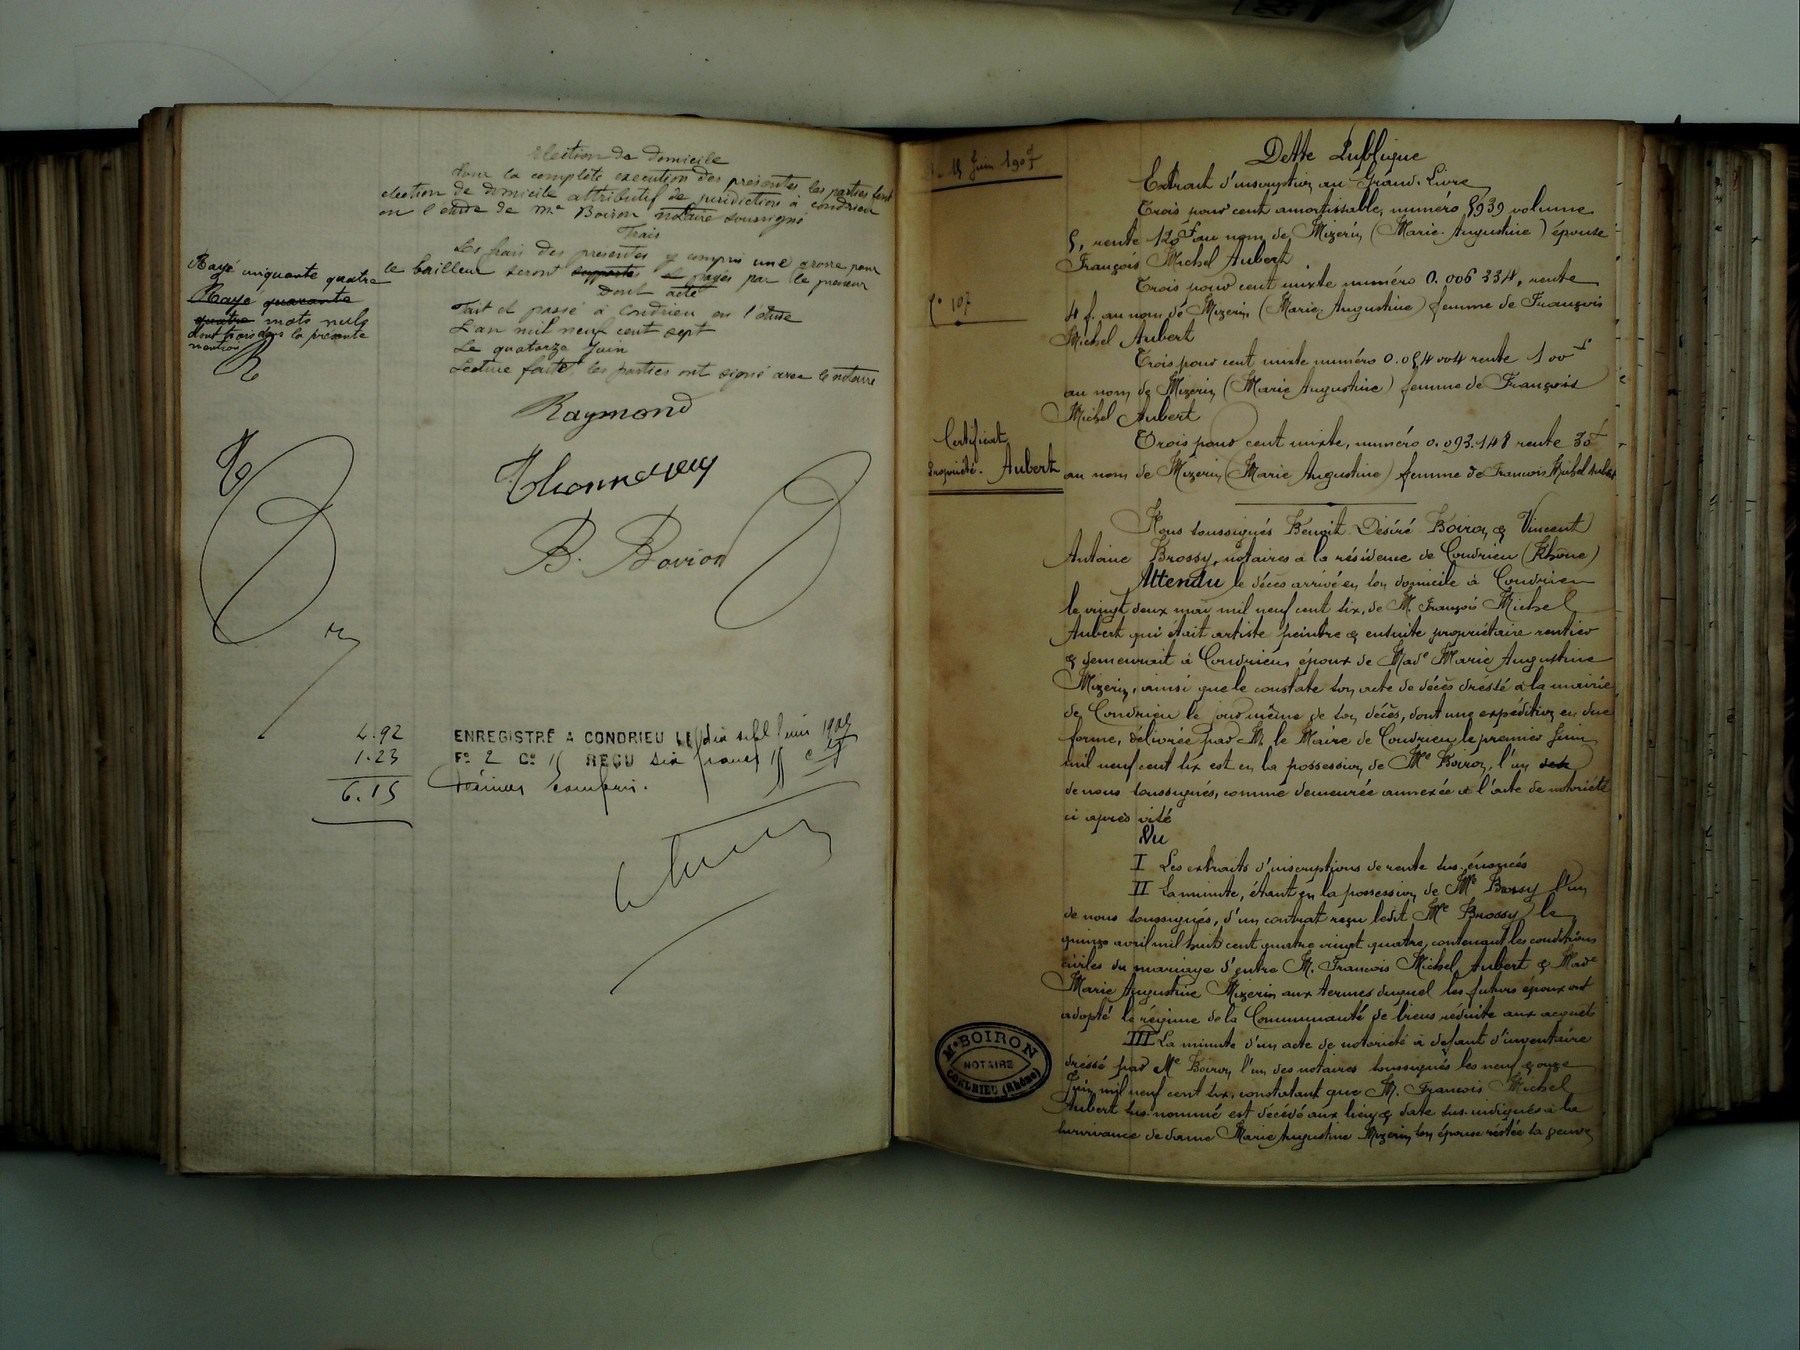 Election de domicile
Pour la complète execution des présentes les parties font
election de domicile attributif de juridiction à Condrieu
en l'étude de Me Boiron notaire soussigné
Frais
Les frais des présentes y compris une grosse pour
le bailleur seront supporté et payés par le preneur
Dont acte
Fait et passé à Condrieu en l'étude
L'an mil neuf cent sept
Le quatorze Juin
Lecture faite, les parties ont signé avec le notaire
Rayé cinquante quatre
Rayé quarante
quatre mots nuls
dont trois dans la présente
mention
Raymond
B. Boiron
4.92
1.23
6.15
ENREGISTRÉ A CONDRIEU LE dix sept Juin 1907
Fo 2 Co 11 REÇU six francs 15 c
Décimes compris.
15 Juin 1907
Co 107
Certificat
Propriété. Aubert
Dette Publique
Extrait d'inscription au Grand-Livre
Trois pour cent amortissable, numéro 5939 volume
5, rente 120f au nom de Mizerin (Marie-Augustine) épouse
François Michel Aubert
Trois pour cent mixte numéro 0.006334, rente
4 f. au nom de Mizerin (Marie Augustine) femme de François
Michel Aubert
Trois pour cent mixte numéro 0.054004 rente 100f
au nom de Mizerin (Marie Augustine) femme de François
Michel Aubert
Trois pour cent mixte, numéro 0.093.148 rente 30f
au nom de Mizerin (Marie Augustine) femme de François Michel Aubert
Nous soussignés Benoit-Désiré Boiron & Vincent
Antoine Brossy, notaires à la résidence de Condrieu (Rhône)
Attendu le décès arrivé en son domicile à Condrieu
le vingt deux mai mil neuf cent six, de M. François Michel
Aubert qui était artiste peintre & ensuite propriétaire rentier
& demeurait à Condrieu, époux de Made Marie Augustine
Mizerin, ainsi que le constate son acte de décès dressé à la mairie
de Condrieu le jour même de son décès, dont une expédition en due
forme, délivrée par M. le Maire de Condrieu le premier Juin
mil neuf cent six est en la possession de Me Boiron, l'un
de nous soussignés, comme demeurée annexée à l'acte de notoriété
ci après visé
Vu
I Les extraits d'inscriptions de rente sus-énoncés
II La minute, étant en la possession de Me Brossy l'un
de nous soussignés, d'un contrat reçu ledit Me Brossy le
quinze avril mil huit cent quatre vingt quatre, contenant les conditions
civiles du mariage d'entre M. François Michel Aubert & Made
Marie Augustine Mizerin aux termes duquel les futurs époux ont
adopté le régime de la Communauté de biens réduite aux acquets
III La minute d'un acte de notoriété à défaut d'inventaire
dressé par Me Boiron l'un des notaires soussignés les neuf & onze
Juin mil neuf cent six, constatant que M. François Michel
Aubert sus-nommé est décédé aux lieu & date sus-indiqués à la
survivance de dame Marie Augustine Mizerin son épouse restée sa veuve
Me BOIRON
NOTAIRE
CONDRIEU (Rhône)